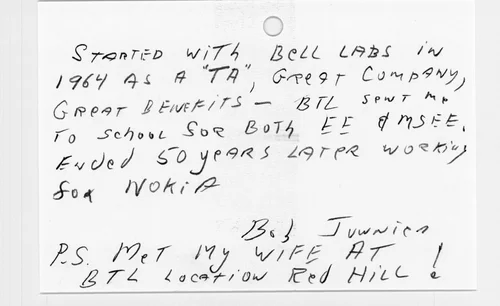 Started with Bell Labs in
1964 as a "TA", Great Company,
Great Benefits - BTL sent me
to school for both EE & MSEE.
Ended 50 years later working
for Nokia
Bob
P.S. Met my wife at
BTL location Red Hill!